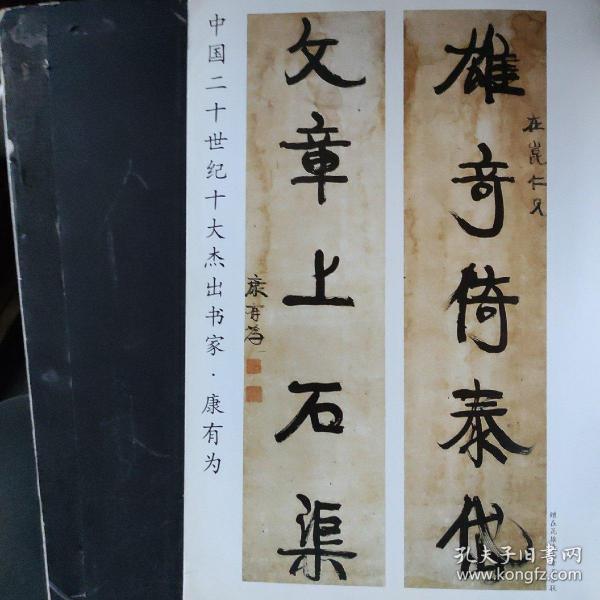 中国二十世纪十大杰出书家·康有为
雄奇倚泰岱
在崑仁兄
文章上石渠
康有为
孔夫子旧书网
www.kongfz.com